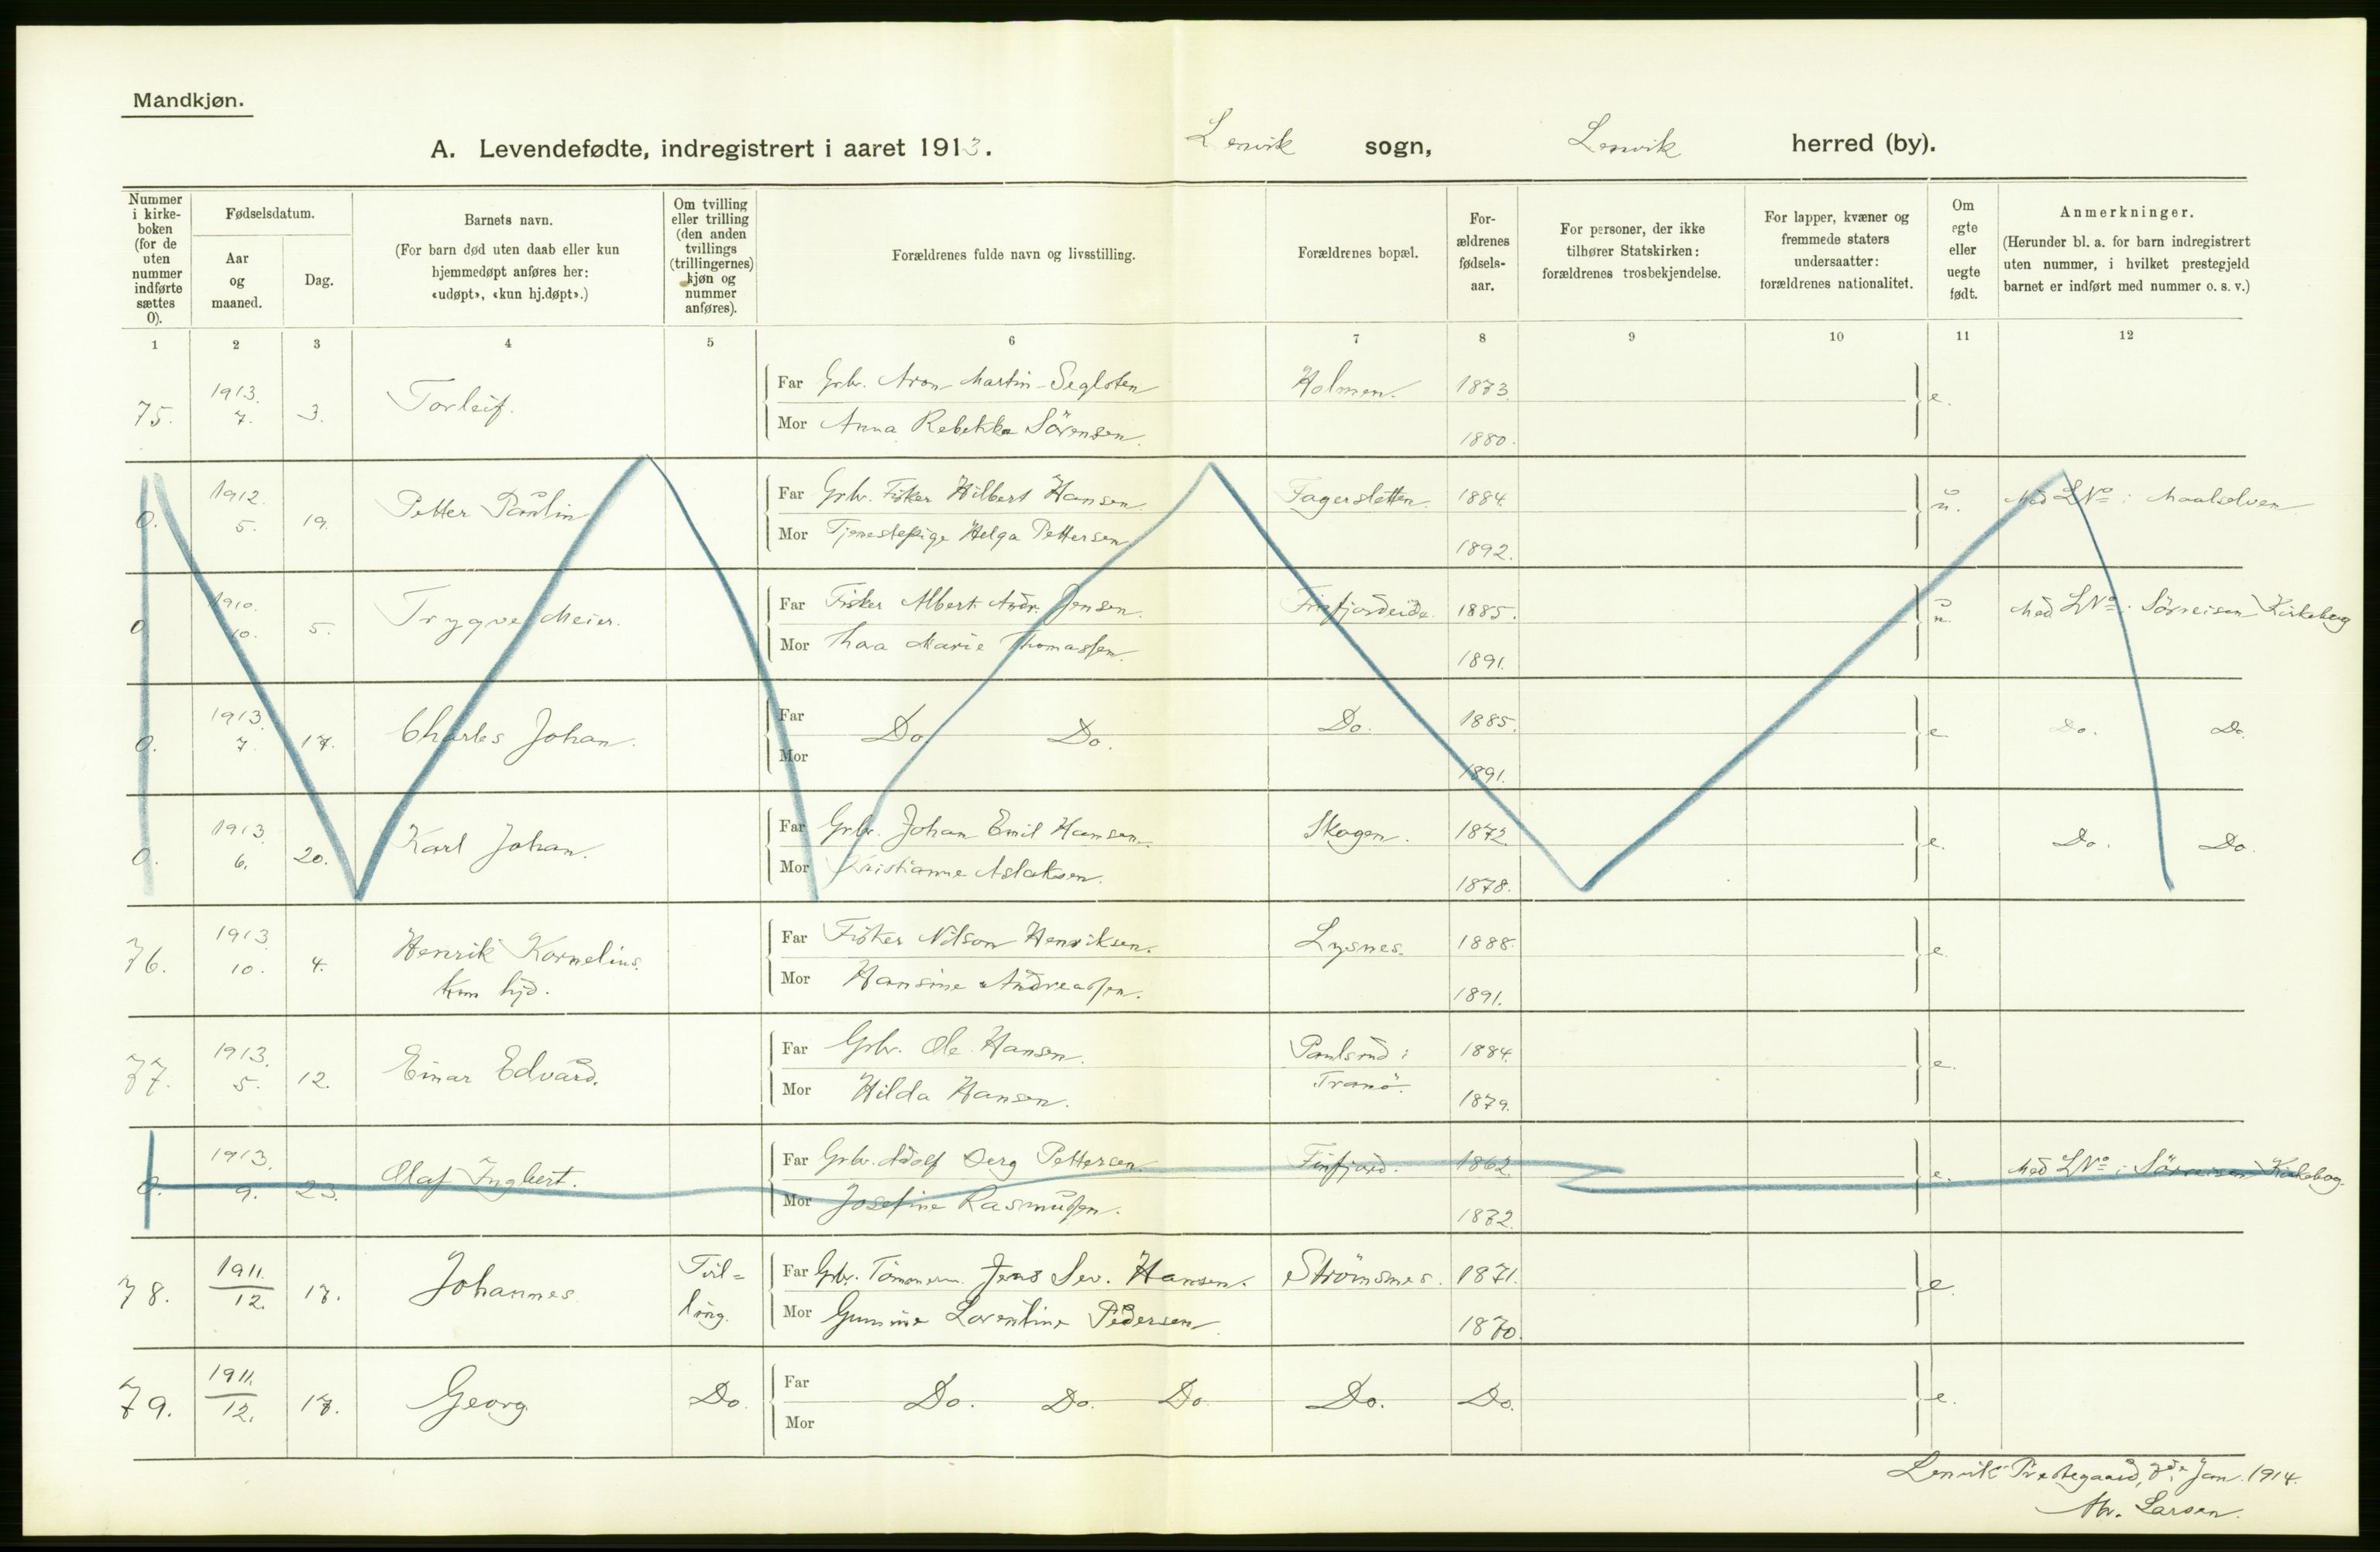 Mandkjøn.
A. Levendefødte, indregistrert i aaret 1913. Lenvik sogn, Lenvik herred (by).
Nummer i kirke-boken (for de uten nummer indførte sættes 0).
Fødselsdatum.
Aar og maaned.
Dag.
Barnets navn.
(For barn død uten daab eller kun hjemmedøpt anføres her: «udøpt», «kun hj.døpt».)
Om tvilling eller trilling (den anden tvillings (trillingernes) kjøn og nummer anføres).
Forældrenes fulde navn og livsstilling.
Forældrenes bopæl.
For-ældrenes fødsels-aar.
For personer, der ikke tilhører Statskirken: forældrenes trosbekjendelse.
For lapper, kvæner og fremmede staters undersaatter: forældrenes nationalitet.
Om egte eller uegte født.
Anmerkninger.
(Herunder bl. a. for barn indregistrert uten nummer, i hvilket prestegjeld barnet er indført med nummer o. s. v.)
1 2 3 4 5 6 7 8 9 10 11 12
75. 1913. 7. 3. Torleif. Far Grbr. Aron Martin Segloten Holmen. 1873. e.
Mor Anna Rebekka Sörensen. 1880.
0. 1912. 5. 19. Petter Paulin Far Grbr. Fisker Hilbert Hansen Fagersletten. 1884. u. Med LNo i Maalselven
Mor Tjenestepige Helga Pettersen 1892.
0 1910. 10. 5. Trygve Meier. Far Fisker Albert Andr. Jensen. Finfjordeide 1885. u. Med LNo i Sörreisen Kirkebog
Mor Thea Marie Thomassen. 1891.
0. 1913. 7. 17. Charles Johan. Far Do Do. Do. 1885. e. Do. Do.
Mor 1891.
0. 1913. 6. 20. Karl Johan. Far Grbr. Johan Emil Hansen. Skogen. 1872. e. Do. Do.
Mor Kristianne Aslaksen. 1878.
76. 1913. 10. 4. Henrik Kornelius. Far Fisker Nilson Henriksen. Lysnes. 1888. e.
kun hjd. Mor Hansine Andreassen. 1891.
77. 1913. 5. 12. Einar Edvard. Far Grbr. Ole Hansen. Paulsrud i 1884. e.
Mor Hilda Hansen. Tranö. 1879.
0. 1913. 9. 23. Olaf Ingbert. Far Grbr. Adolf Berg Pettersen Finfjord. 1862 e. Med LNo i Sörreisen Kirkebog.
Mor Josefine Rasmussen. 1872.
78. 1911. 12. 17. Johannes Tvil= Far Grbr. Tömmerm. Jens Sev. Hansen. Strömsnes. 1871. e.
ling. Mor Gunnine Lorentine Pedersen 1870.
79. 1911. 12. 17. Georg Do. Far Do. Do. Do. Do. Do. e.
Mor
Lenvik Prestegaard, 7de Jan. 1914.
Larsen.